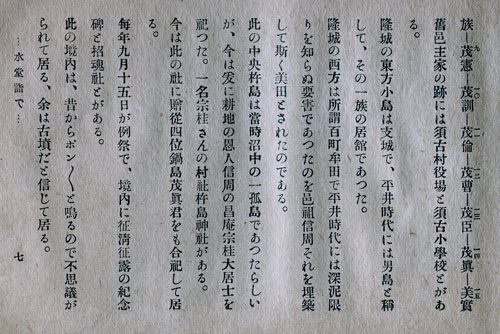 九 一〇 一一 一二 一三 一四 一五
族─茂憲─茂訓─茂倫─茂曹─茂臣─茂眞─美實
舊邑主家の跡には須古村役場と須古小學校とがあ
る。
隆城の東方小島は支城で、平井時代には男島と稱
して、その一族の居館であつた。
隆城の西方は所謂百町牟田で平井時代には深泥限
りを知らぬ要害であつたのを邑祖信周それを埋築
して斯く美田とされたのである。
此の中央杵島は當時沼中の一孤島であつたらしい
が、今は爰に耕地の恩人信周の昌庵宗桂大居士を
祀つた。一名宗桂さんの村社杵島神社がある。
今は此の社に贈從四位鍋島茂眞君をも合祀して居
る。
毎年九月十五日が例祭で、境内に征清征露の紀念
碑と招魂社とがある。
此の境内は、昔からボン〳〵と鳴るので不思議が
られて居る、余は古墳だと信じて居る。
…水堂詣で…
七